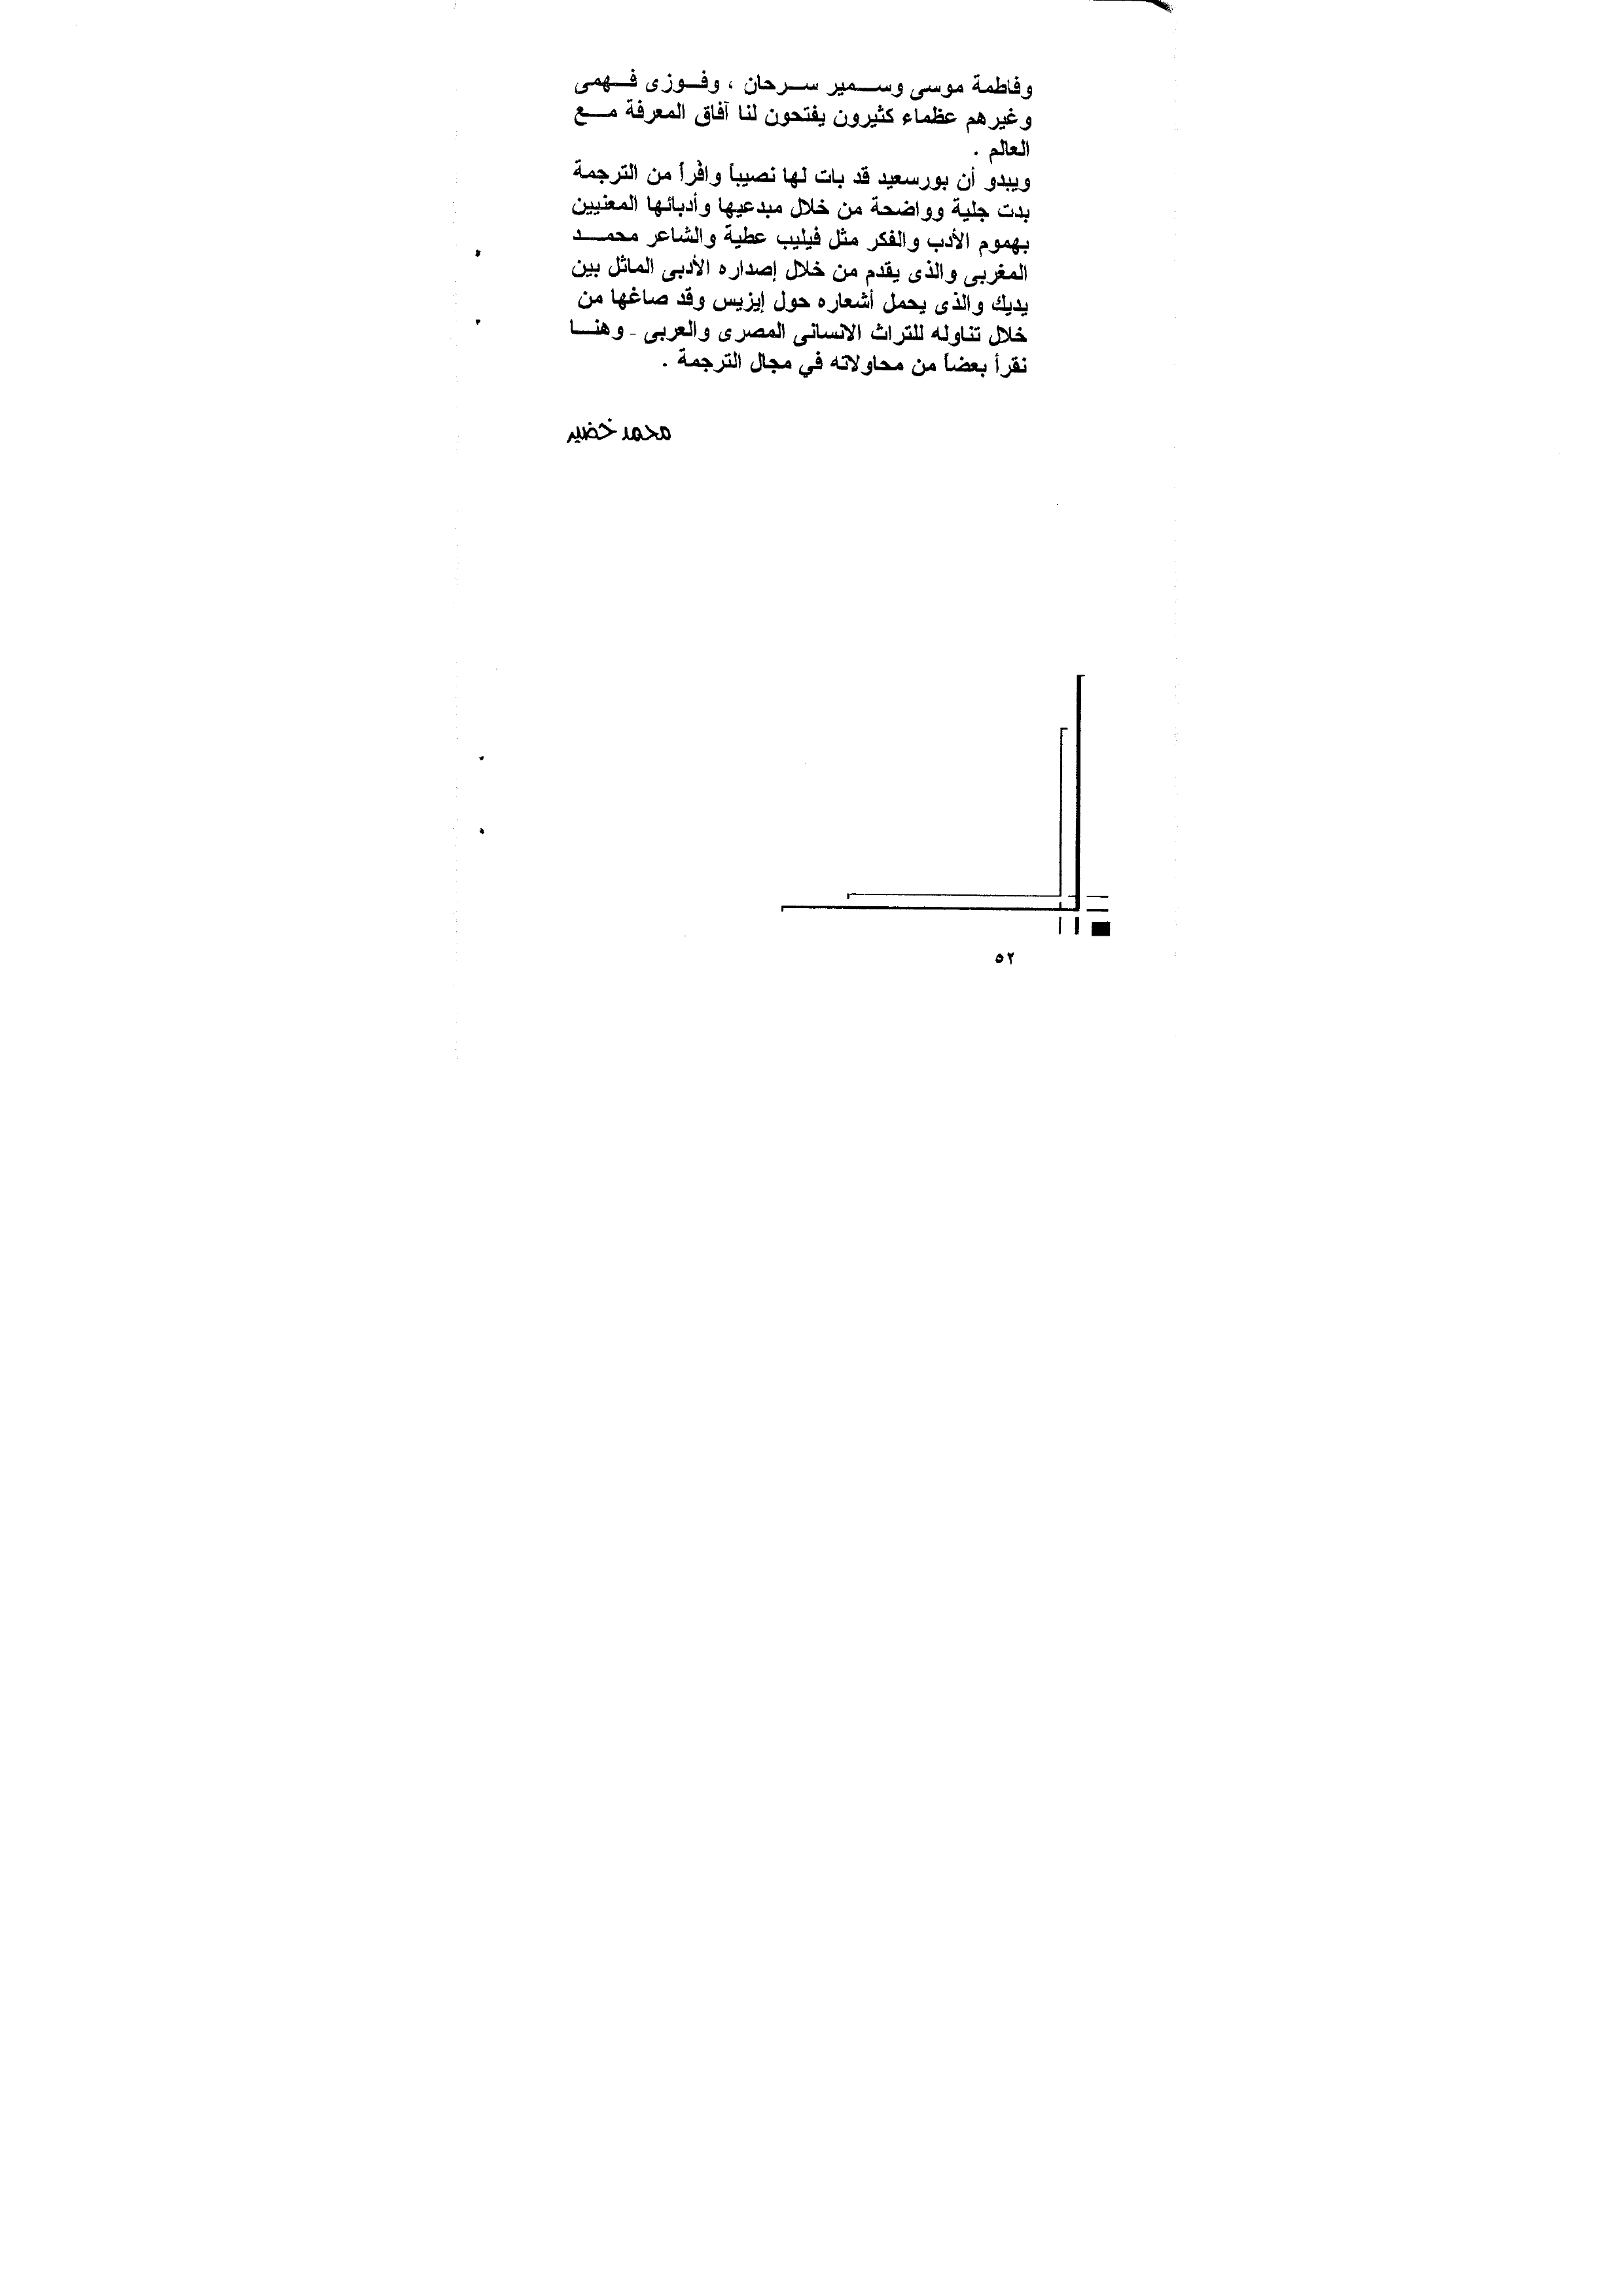 وفاطمة موسى وسمير سرحان ، وفوزى فهمى
وغيرهم عظماء كثيرون يفتحون لنا آفاق المعرفة مع
العالم .
ويبدو أن بورسعيد قد بات لها نصيباً وافراً من الترجمة
بدت جلية وواضحة من خلال مبدعيها وأدبائها المعنيين
بهموم الأدب والفكر مثل فيليب عطية والشاعر محمد
المغربى والذى يقدم من خلال إصداره الأدبى الماثل بين
يديك والذى يحمل أشعاره حول إيزيس وقد صاغها من
خلال تناوله للتراث الانسانى المصرى والعربى - وهنا
نقرأ بعضاً من محاولاته في مجال الترجمة .
محمد خضير
٥٢